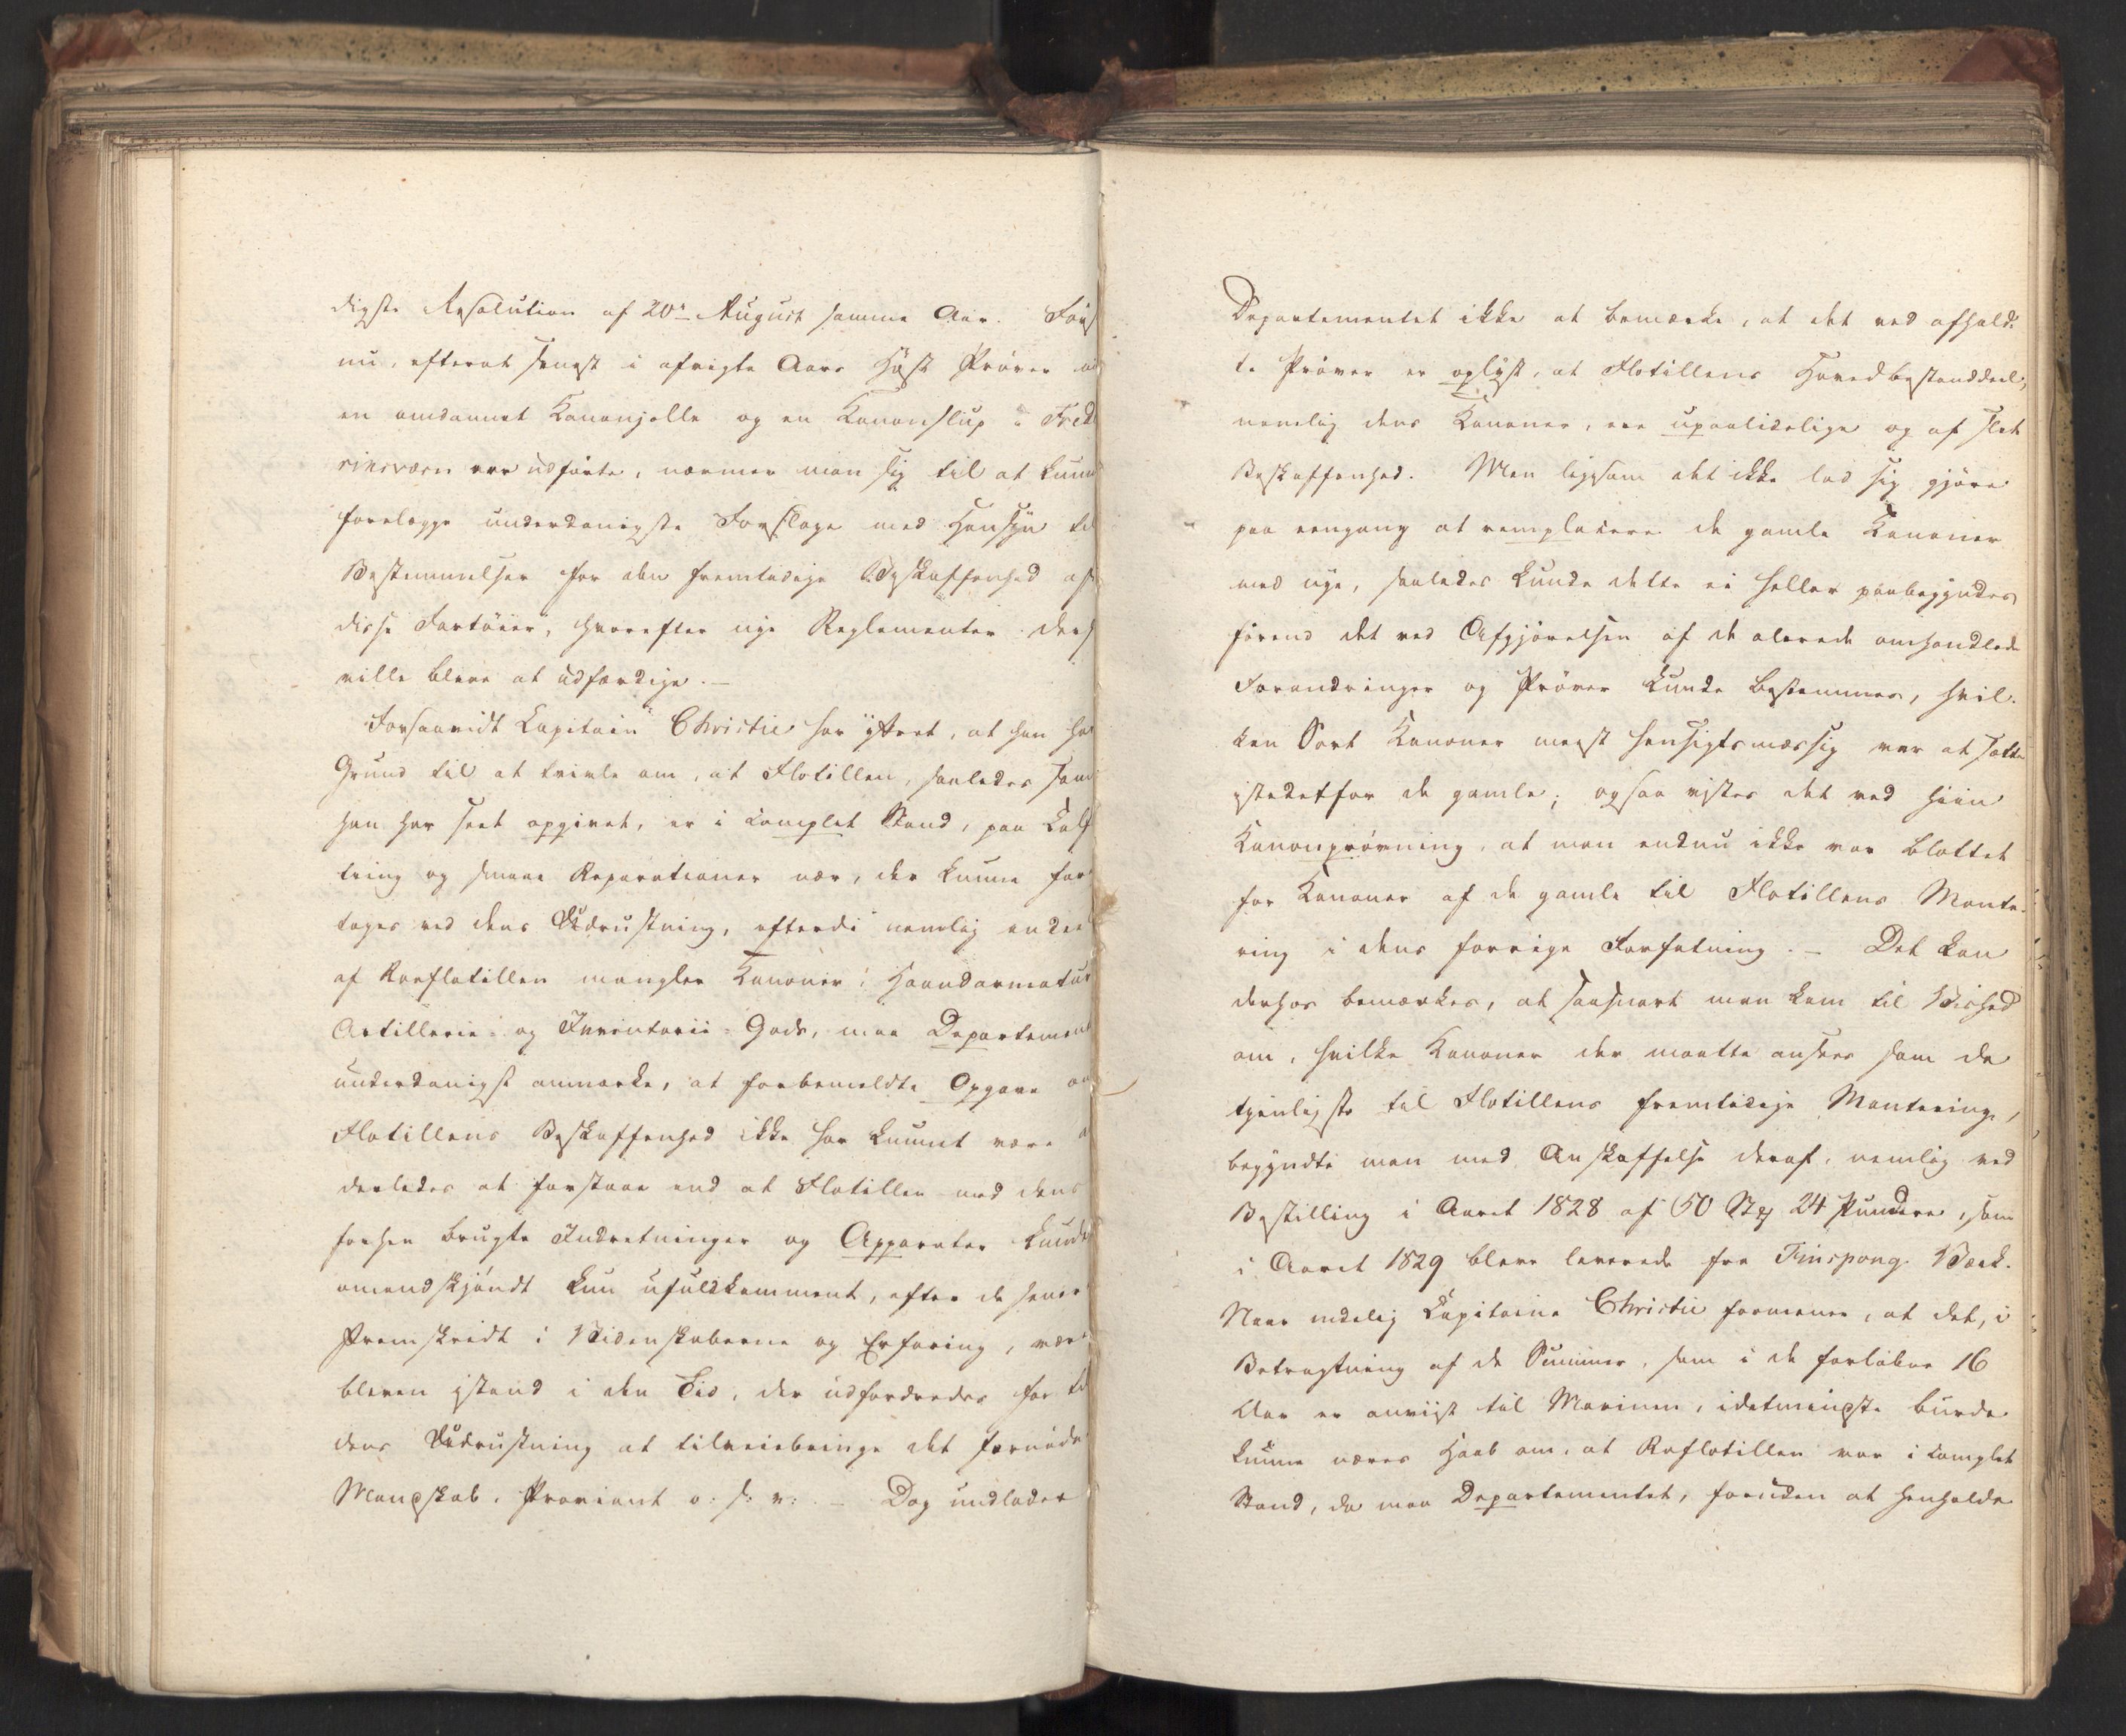 digste Resolution af 20de August samme Aar. Først
nu, efterat senest i afvigte Aars Høst Prøver
en omdannet Kanonjolle og en Kanonslup i Fred
riksværn var udførte, nærmer man sig til at kunne
forelægge underdanigste Forslage med Hensyn til
Bestemmelser for den fremtidige Beskaffenhed af
disse Fartøier, hvorefter nye Reglementer
ville blive at udfærdige. —
Forsaavidt Capitain Christie har yttret, at han har
Grund til at tvivle om, at Flotillen, saaledes som
han har seet opgivet, er i complet Stand, paa Kalf
tring og smaae Reparationer nær, der kunne fore
tages ved dens Udrustning, efterdi nemlig endeel
af Roeflotillen mangler Kanoner, Haandarmatur
Artillerie- og Inventarii-Gods, maa Departement
underdanigst anmærke, at forbemeldte Opgave om
Flotillens Beskaffenhed ikke har kunnet være
derledes at forstaae end at Flotillen med dens
forhen brugte Indretninger og Apparater kunde
omendskjøndt kun ufuldkomment, efter de senere
Fremskridt i Videnskaberne og Erfaring, være
bleven istand i den Tid, der udfordredes for til
dens Udrustning at tilveiebringe det fornødne
Mandskab, Proviant o: s: v: — Dog undlader
Departementet ikke at bemærke, at det ved afhold-
te Prøver er oplyst, at Flotillens Hovedbestanddeel,
nemlig dens Kanoner, ere upaalidelige og af slet
Beskaffenhed. Men ligesom det ikke lod sig gjøre
paa eengang at remplacere de gamle Kanoner
med nye, saaledes kunde dette ei heller paabegyndes
førend det ved Afgjørelsen af de allerede omhandlede
Forandringer og Prøver kunde bestemmes, hvil-
ken Sort Kanoner meest hensigtsmæssig var at sætte
istedetfor de gamle; ogsaa vistes det ved hiin
Kanonprøvning, at man endnu ikke var blottet
for Kanoner af de gamle til Flotillens Monte-
ring i dens forrige Forfatning. — Det kan
derhos bemærkes, at saasnart man kom til Vished
om, hvilke Kanoner der maatte ansees som de
tjenligste til Flotillens fremtidige Montering,
begyndte man med Anskaffelse deraf, nemlig ved
Bestilling i Aaret 1828 af 50 Stkr 24 Pundere, som
i Aaret 1829 bleve leverede fra Finspong Værk.
Naar endelig Capitaine Christie formener, at det, i
Betragtning af de Summer, som i de forløbne 16
Aar er anviist til Marinen, idetmindste burde
kunne næres Haab om, at Roflotillen var i complet
Stand, da maa Departementet, foruden at henholde